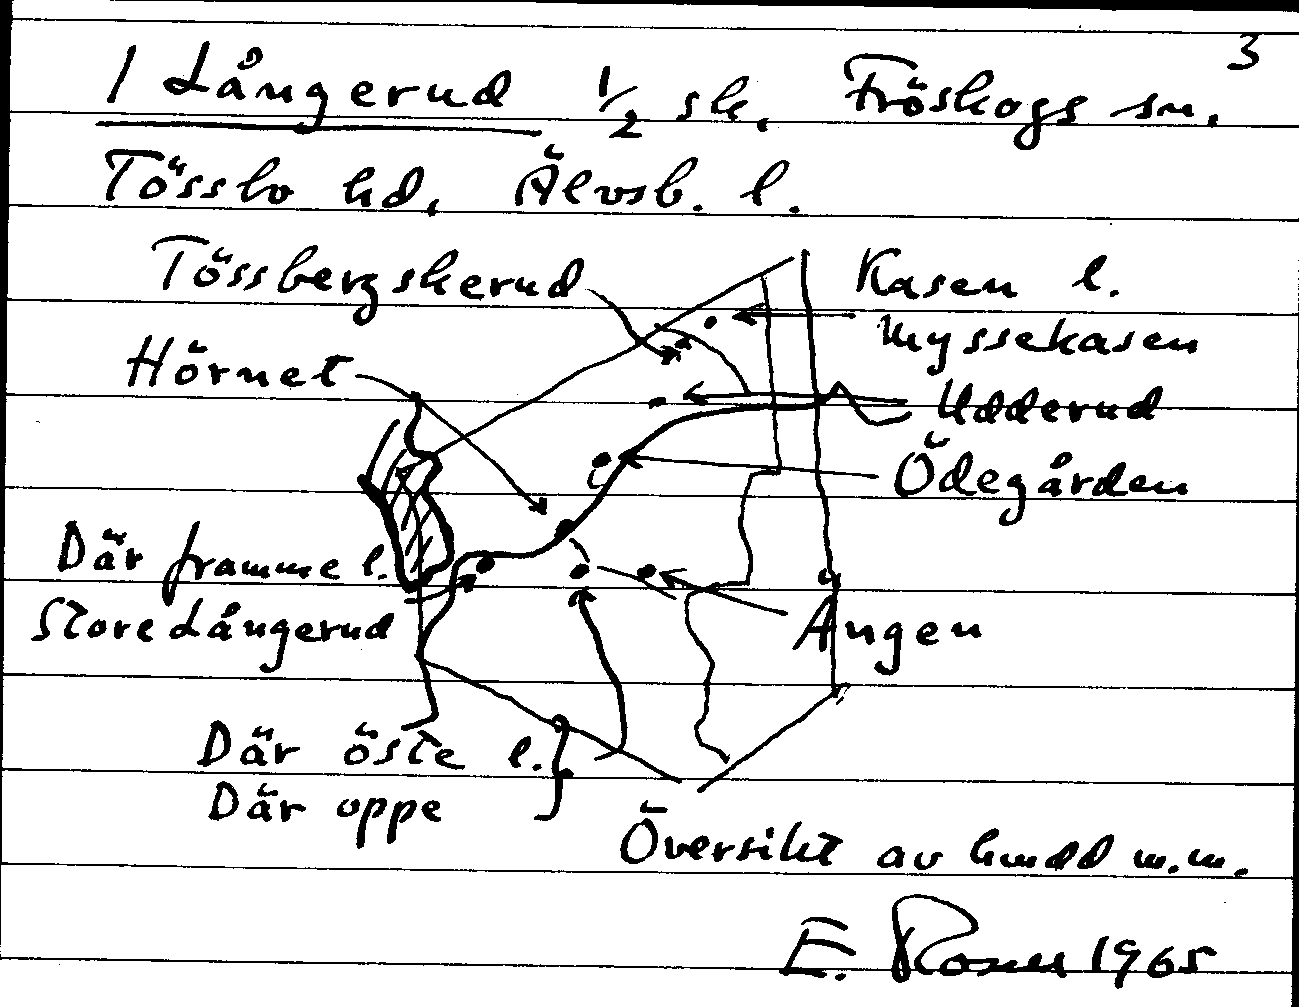 3
1 Långerud 1/2 sk. Fröskogs sn.
Tössbo hd. Älvsb. l.
Tössbergskerud
Kasen l.
Myssekasen
Hörnet
Udderud
Ödegården
Där framme l.
Store Långerud
Ängen
Där öste l.
Där oppe
Översikt av hmdd m.m.
E. Rosell 1965